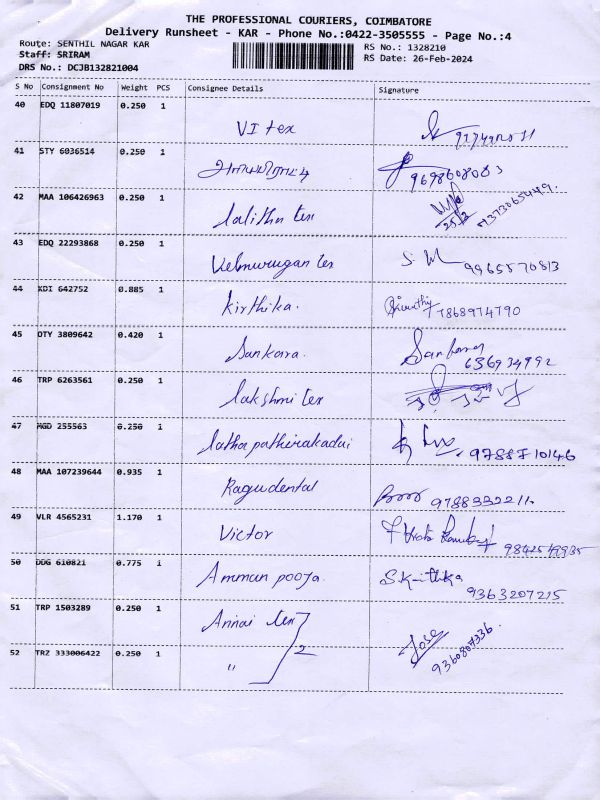 THE PROFESSIONAL COURIERS, COIMBATORE
Delivery Runsheet - KAR - Phone No.:0422-3505555 - Page No.:4
Route: SENTHIL NAGAR KAR
RS No.: 1328210
Staff: SRIRAM
RS Date: 26-Feb-2024
DRS No.: DCJB132821004
S No Consignment No Weight PCS Consignee Details Signature
40 EDQ 11807019 0.250 1 VI tex
41 STY 6036514 0.250 1 9698608083
42 MAA 106426963 0.250 1 Lalitha tex 25/2 9373065449.
43 EDQ 22293868 0.250 1 Velmurugan tex S. M 9965570813
44 KDI 642752 0.885 1 Kirthika. 7868974790
45 OTY 3809642 0.420 1 Sankara. Sankara 636934992
46 TRP 6263561 0.250 1 Lakshmi tex
47 MGD 255563 0.250 1 Latha pathirakadai
48 MAA 107239644 0.935 1 Ragudental 9788332211.
49 VLR 4565231 1.170 1 Victor 9842549935
50 DDG 610821 0.775 1 Amman pooja. S. Karthika 9363207215
51 TRP 1503289 0.250 1 Annai tex
52 TRZ 333006422 0.250 1 " 2 Jose 9360807336.